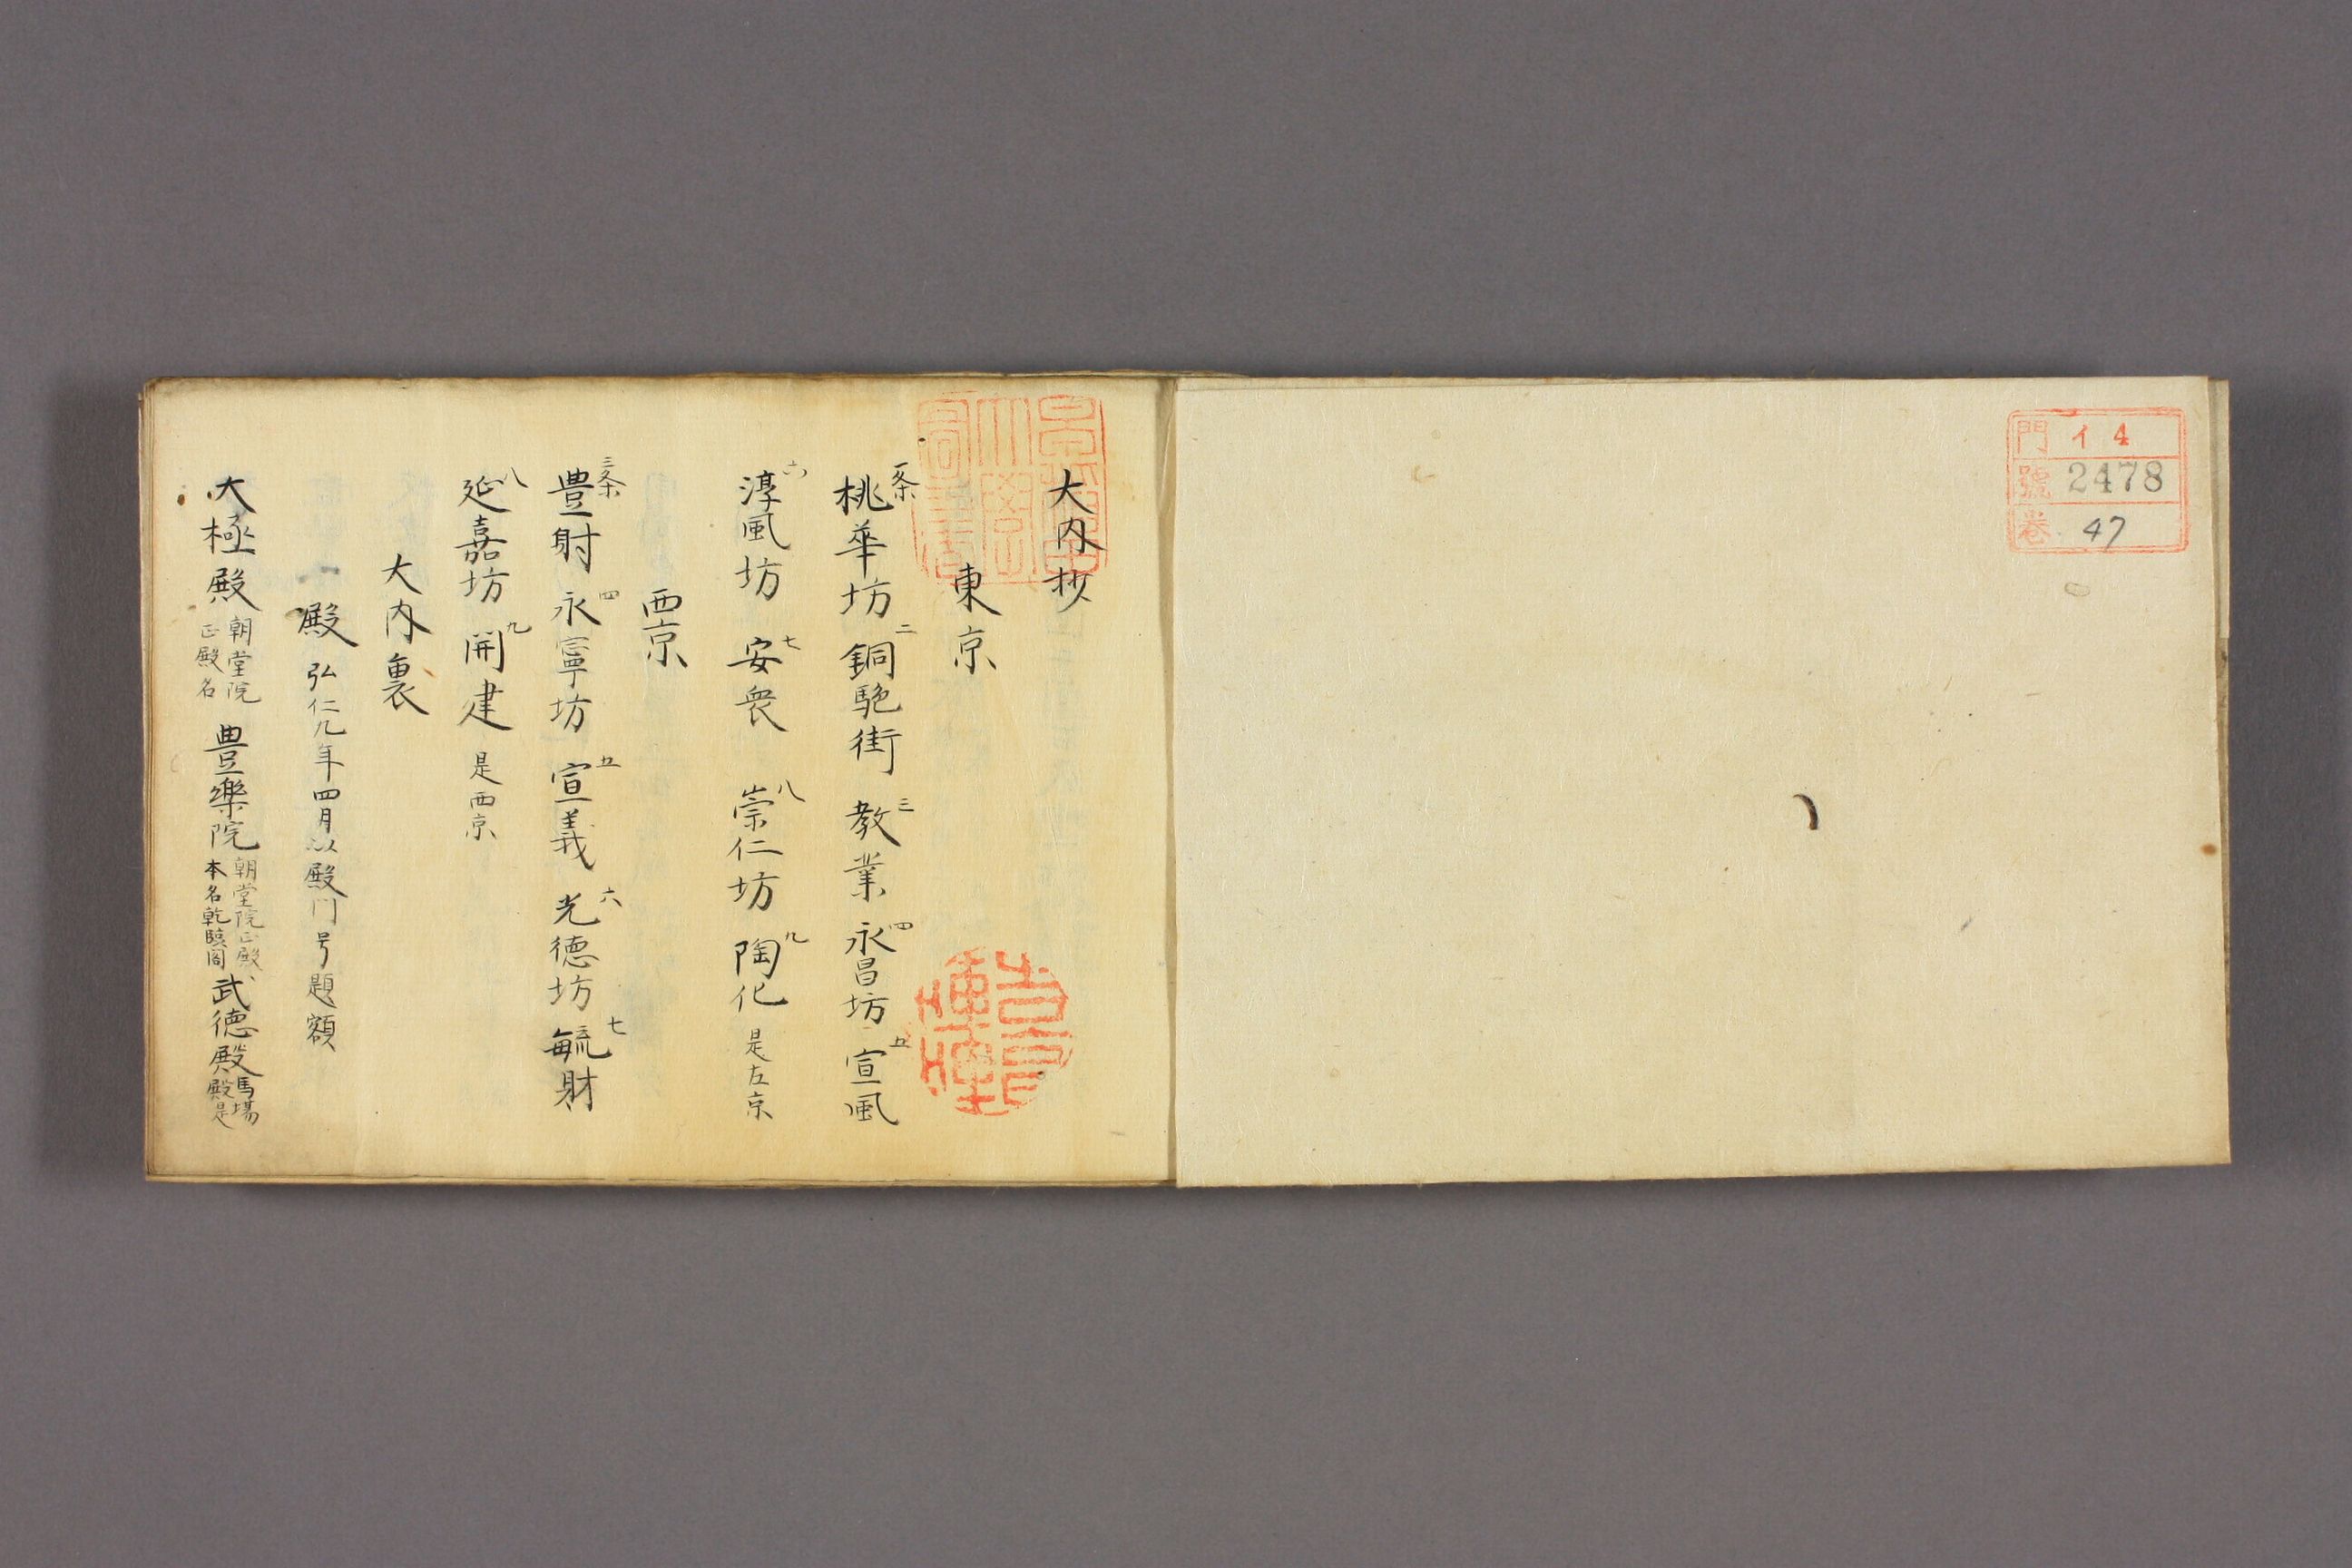 門 イ4
號 2478
卷 47
大内抄
東京
一条桃華坊 二銅駞街 三教業 四永昌坊 五宣風
六淳風坊 七安衆 八崇仁坊 九陶化 是左京
西京
三条豊財 四永寧坊 五宣義 六光徳坊 七毓財
八延嘉坊 九開建 是西京
大内裏
殿 弘仁九年四月以殿門号題額
大極殿 朝堂院正殿名 豊樂院 朝堂院正殿本名乾臨閣 武徳殿 馬場殿是